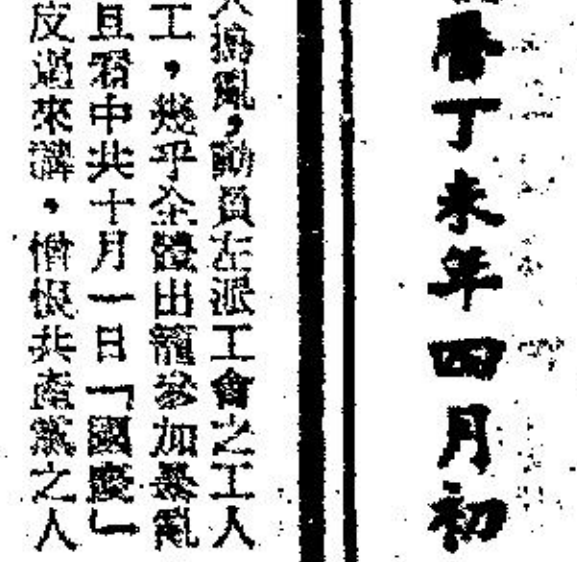 曆丁未年四月初
人搗亂，動員左派工會之工人
工，幾乎全體出籠參加暴亂
且看中共十月一日「國慶」
反過來講，憎恨共產黨之人